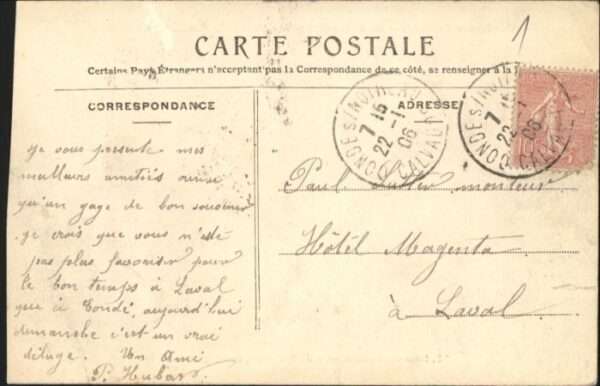 1
CARTE POSTALE
Certains Pays Étrangers n'acceptant pas la Correspondance de ce côté, se renseigner à la
CORRESPONDANCE
ADRESSE
CONDÉ S/NOIREAU
7 15
22 -1
06
CALVADOS
CONDÉ S/NOIREAU
7 15
22 -1
06
CALVADOS
je vous présente mes
meilleurs amitiés
qu'un gage de bon souvenir
je crois que vous n'été
pas plus favoriser pour
le bon temps à Laval
que à Condé, aujourd'hui
dimanche c'est un vrai
déluge. Un Ami
P. Hubar
Paul monteur
Hôtel Magenta
à Laval